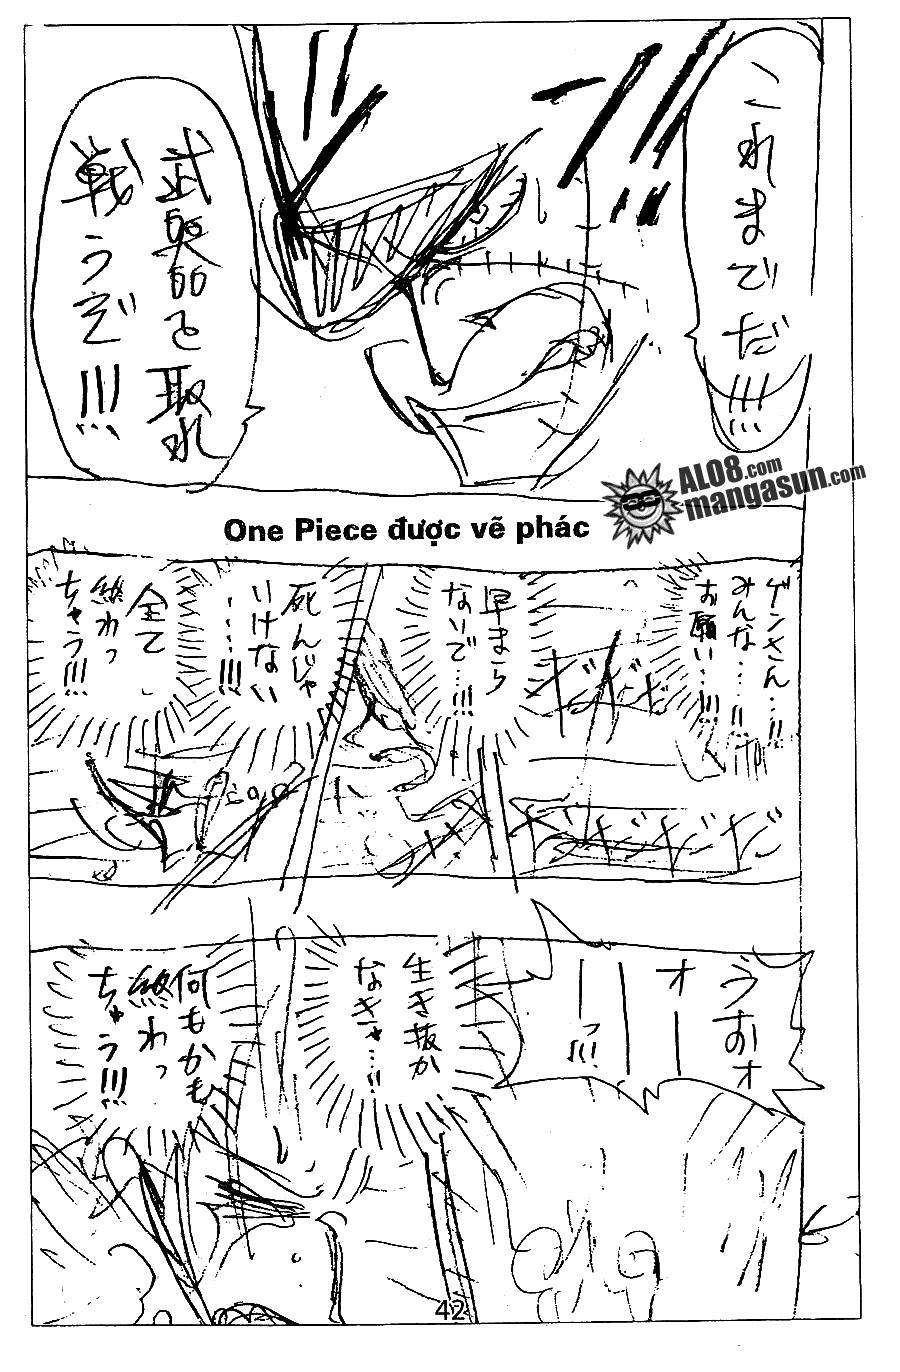 これまでだ!!!
武器を取れ
戦うぞ!!!
AL08.com
mangasun.com
One Piece được vẽ phác
ゲンさん…!!
みんな…!!
お願い…!!!
早まら
ないで…!!!
死んじゃ
いけない
……!!!
全て
終わっ
ちゃう!!!
ドドド
ドドドドド
うおォ
オーー
ーーっ!!!
生き抜か
なきゃ…!!
何もかも
終わっ
ちゃう!!!
42